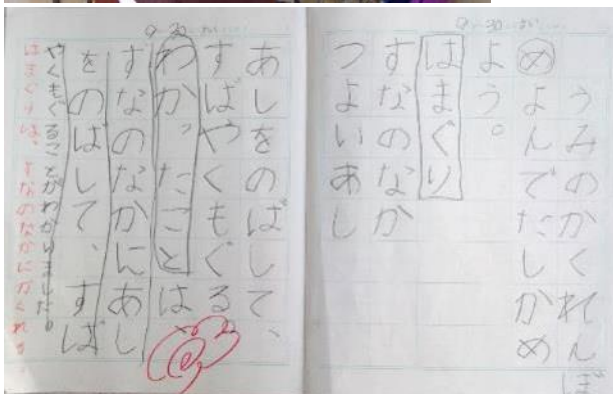 うみのかくれんぼ
めよんでたしかめ
よう。
はまぐり
すなのなか
つよいあし
あしをのばして、
すばやくもぐる
わかったことは
すなのなかにあし
をのばして、すば
やくもぐることがわかりました。
はまぐりは、すなのなかにかくれる